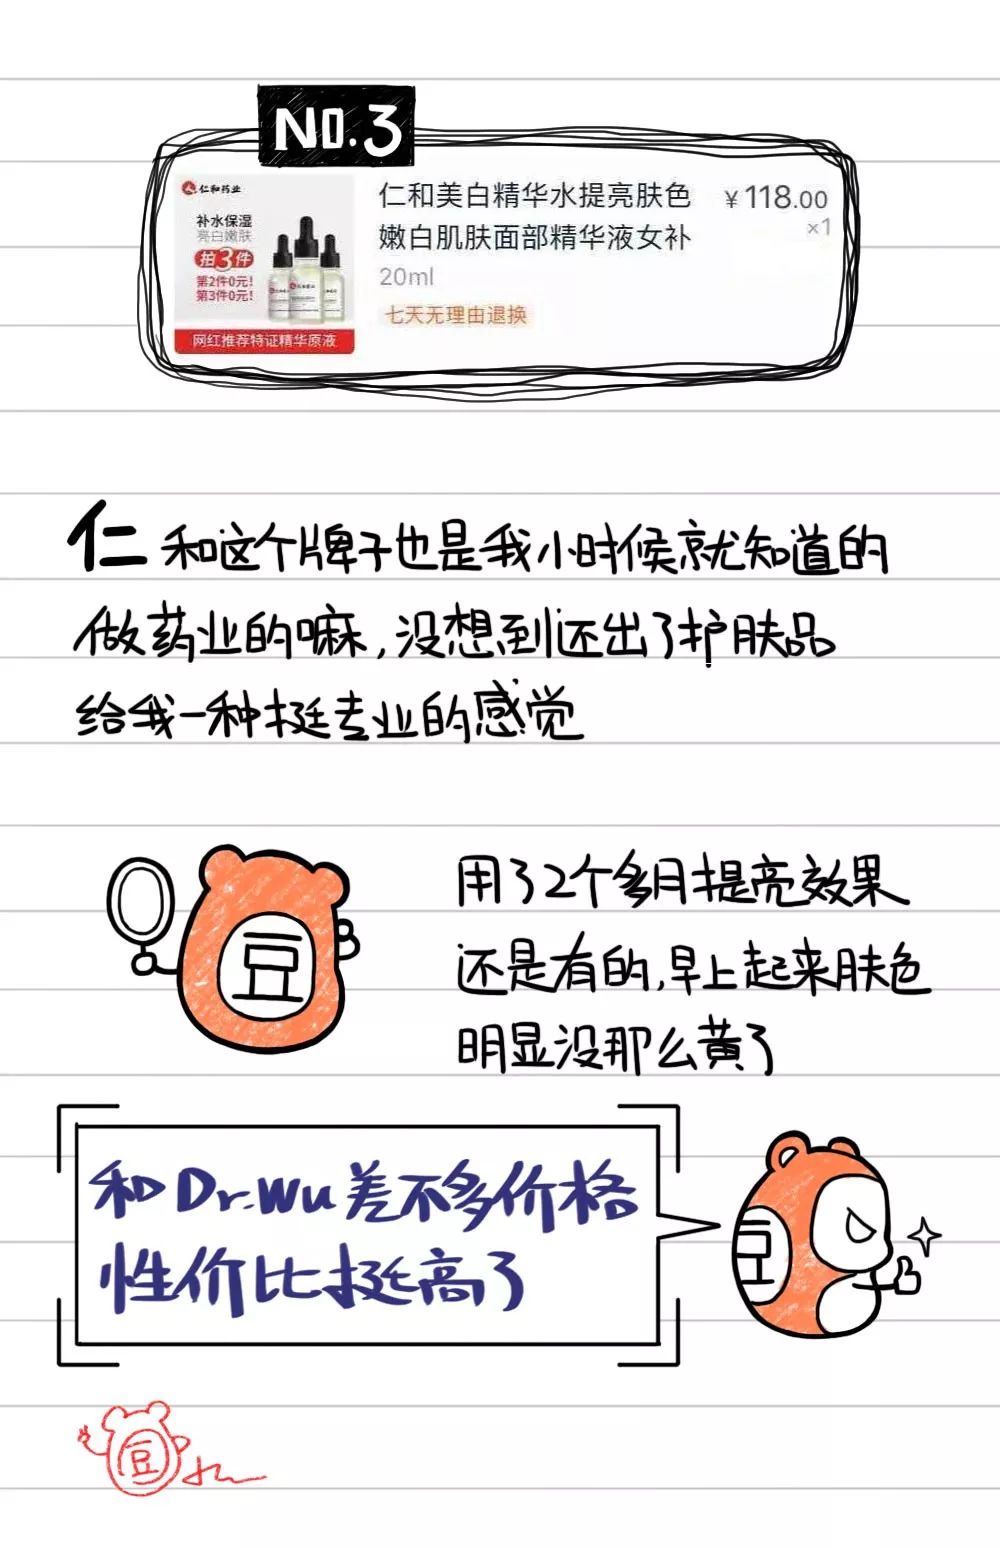 NO.3
仁和药业
补水保湿
亮白嫩肤
拍3件
第2件0元!
第3件0元!
网红推荐特证精华原液
仁和美白精华水提亮肤色
嫩白肌肤面部精华液女补
20ml
七天无理由退换
¥118.00
×1
仁和这个牌子也是我小时候就知道的
做药业的嘛,没想到还出了护肤品
给我一种挺专业的感觉
豆
用了2个多月提亮效果
还是有的,早上起来肤色
明显没那么黄了
和Dr.Wu差不多价格
性价比挺高了
豆
豆